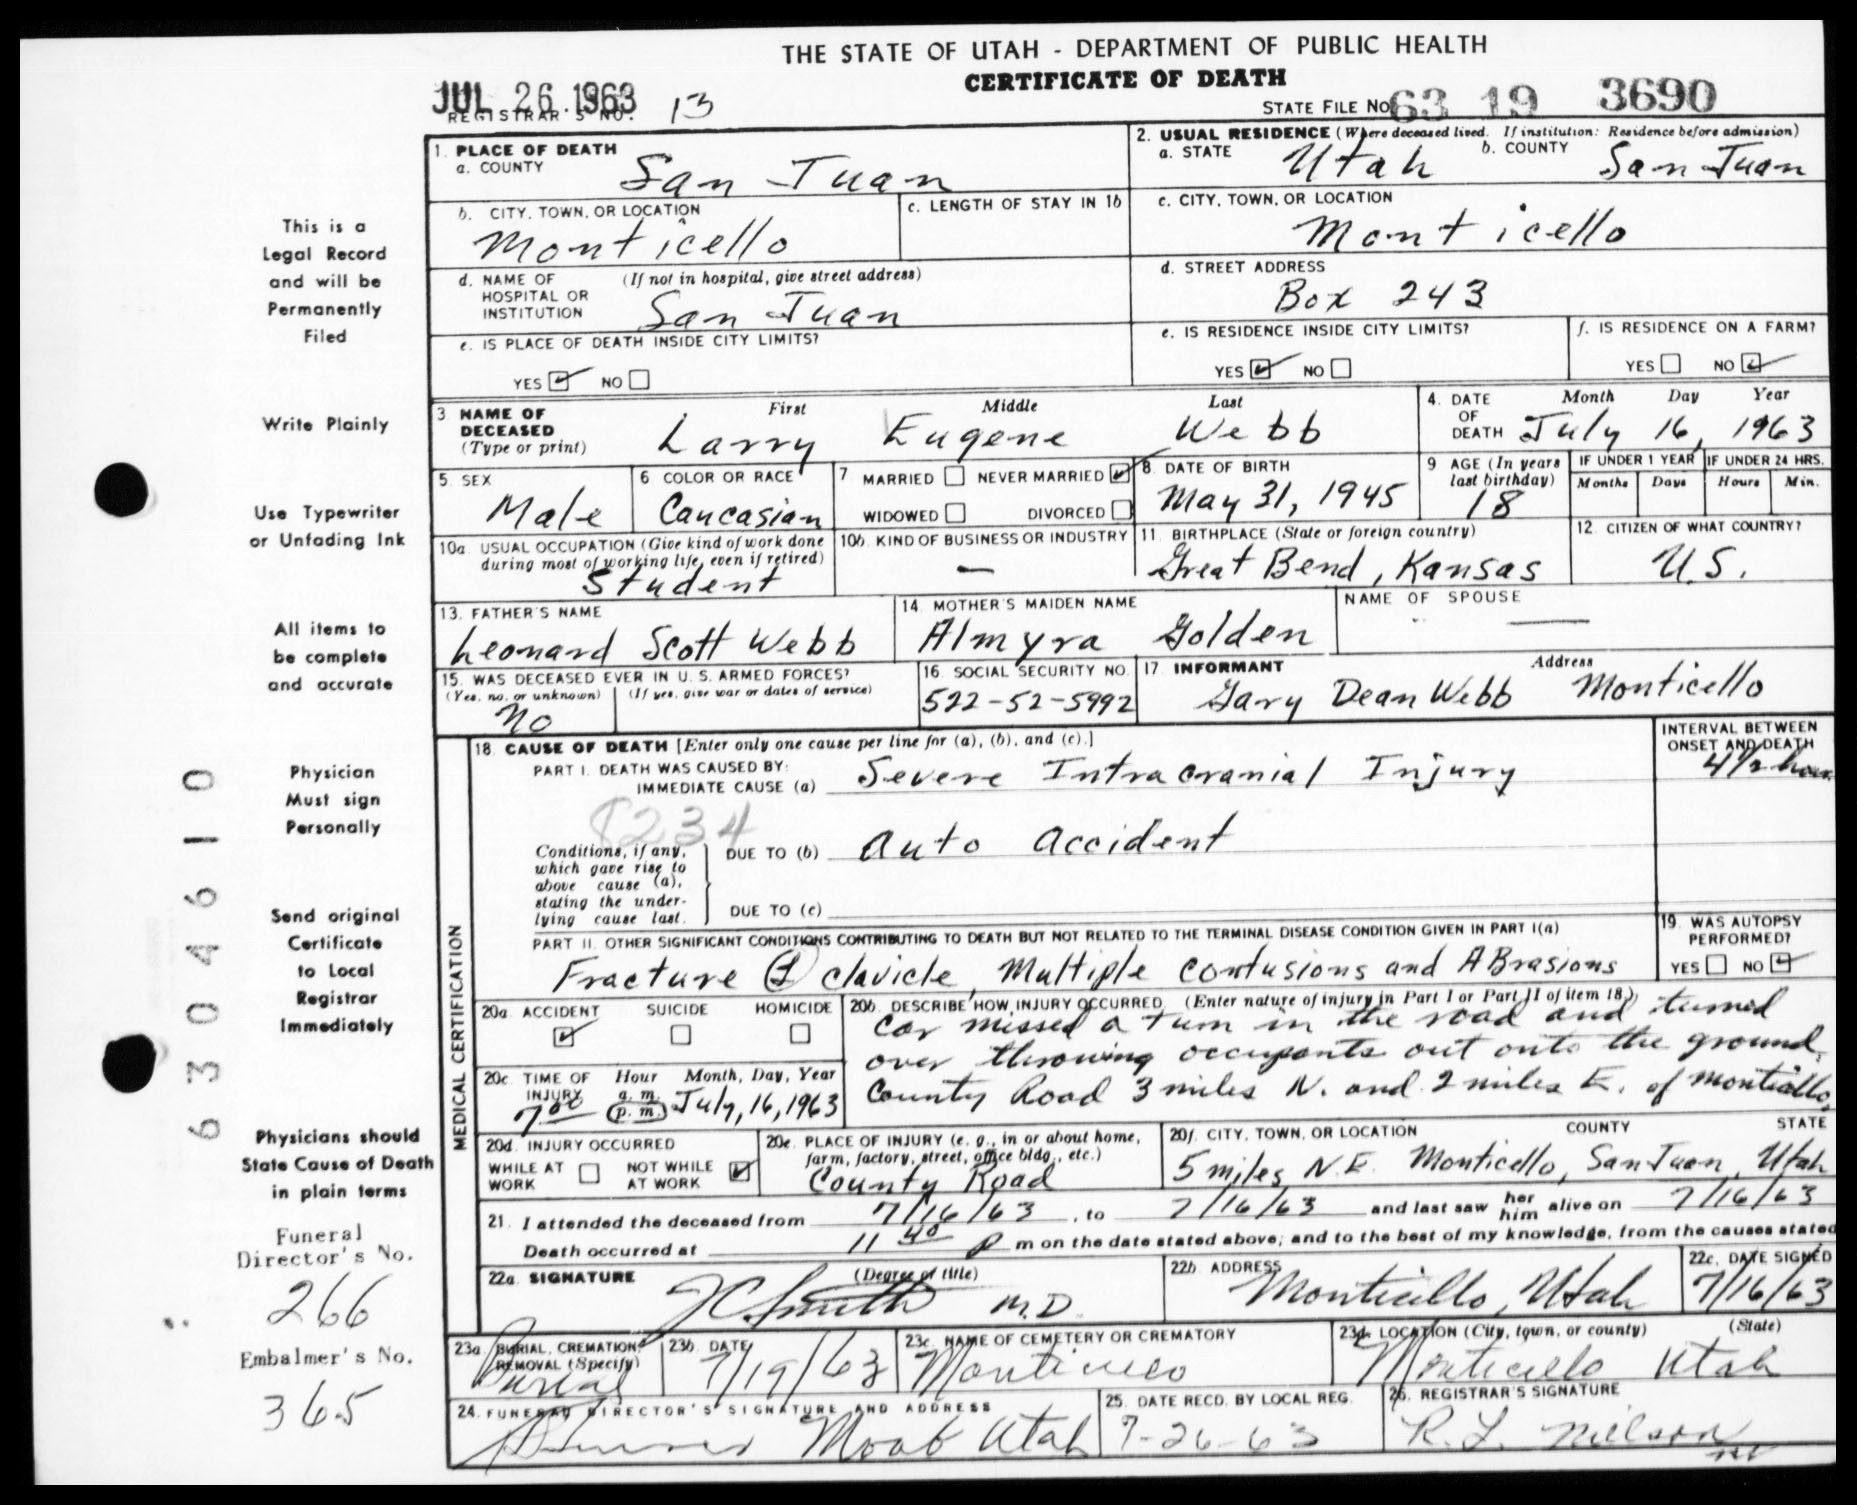 THE STATE OF UTAH - DEPARTMENT OF PUBLIC HEALTH
CERTIFICATE OF DEATH
JUL 26 1963
REGISTRAR'S NO. 13
STATE FILE NO. 63 19 3690
This is a
Legal Record
and will be
Permanently
Filed
Write Plainly
Use Typewriter
or Unfading Ink
All items to
be complete
and accurate
Physician
Must sign
Personally
Send original
Certificate
to Local
Registrar
Immediately
Physicians should
State Cause of Death
in plain terms
Funeral
Director's No.
266
Embalmer's No.
365
6304610
1. PLACE OF DEATH
a. COUNTY San Juan
b. CITY, TOWN, OR LOCATION
Monticello
c. LENGTH OF STAY IN 1b
d. NAME OF HOSPITAL OR INSTITUTION (If not in hospital, give street address)
San Juan
e. IS PLACE OF DEATH INSIDE CITY LIMITS?
YES ✓ NO
2. USUAL RESIDENCE (Where deceased lived. If institution: Residence before admission)
a. STATE Utah b. COUNTY San Juan
c. CITY, TOWN, OR LOCATION
Monticello
d. STREET ADDRESS
Box 243
e. IS RESIDENCE INSIDE CITY LIMITS?
YES ✓ NO
f. IS RESIDENCE ON A FARM?
YES NO ✓
3. NAME OF DECEASED (Type or print)
First Middle Last
Larry Eugene Webb
4. DATE OF DEATH Month Day Year
July 16, 1963
5. SEX
Male
6 COLOR OR RACE
Caucasian
7 MARRIED NEVER MARRIED ✓
WIDOWED DIVORCED
8. DATE OF BIRTH
May 31, 1945
9 AGE (In years last birthday)
18
IF UNDER 1 YEAR
Months Days
IF UNDER 24 HRS.
Hours Min.
10a. USUAL OCCUPATION (Give kind of work done during most of working life, even if retired)
Student
10b. KIND OF BUSINESS OR INDUSTRY
—
11. BIRTHPLACE (State or foreign country)
Great Bend, Kansas
12. CITIZEN OF WHAT COUNTRY?
U.S.
13. FATHER'S NAME
Leonard Scott Webb
14. MOTHER'S MAIDEN NAME
Almyra Golden
NAME OF SPOUSE
—
15. WAS DECEASED EVER IN U. S. ARMED FORCES?
(Yes, no, or unknown) (If yes, give war or dates of service)
No
16. SOCIAL SECURITY NO.
522-52-5992
17. INFORMANT Address
Gary Dean Webb Monticello
MEDICAL CERTIFICATION
18. CAUSE OF DEATH [Enter only one cause per line for (a), (b), and (c).]
INTERVAL BETWEEN ONSET AND DEATH
PART I. DEATH WAS CAUSED BY:
IMMEDIATE CAUSE (a) Severe Intracranial Injury
4 1/2 hour
8234
Conditions, if any, which gave rise to above cause (a), stating the underlying cause last.
DUE TO (b) Auto Accident
DUE TO (c)
PART II. OTHER SIGNIFICANT CONDITIONS CONTRIBUTING TO DEATH BUT NOT RELATED TO THE TERMINAL DISEASE CONDITION GIVEN IN PART I(a)
Fracture (L) clavicle, Multiple contusions and ABrasions
19. WAS AUTOPSY PERFORMED?
YES NO ✓
20a. ACCIDENT SUICIDE HOMICIDE
✓
20b. DESCRIBE HOW INJURY OCCURRED. (Enter nature of injury in Part I or Part II of item 18.)
Car missed a turn in the road and turned
over throwing occupants out onto the ground.
County Road 3 miles N. and 2 miles E. of Monticello.
20c. TIME OF INJURY Hour a. m. p. m. Month, Day, Year
7 00 July, 16, 1963
20d. INJURY OCCURRED
WHILE AT WORK NOT WHILE AT WORK ✓
20e. PLACE OF INJURY (e. g., in or about home, farm, factory, street, office bldg., etc.)
County Road
20f. CITY, TOWN, OR LOCATION COUNTY STATE
5 miles N.E. Monticello, San Juan, Utah
21. I attended the deceased from 7/16/63, to 7/16/63 and last saw her him alive on 7/16/63
Death occurred at 11 40 P m on the date stated above; and to the best of my knowledge, from the causes stated
22a. SIGNATURE (Degree or title)
Smith M.D.
22b. ADDRESS
Monticello, Utah
22c. DATE SIGNED
7/16/63
23a. BURIAL, CREMATION, REMOVAL (Specify)
Burial
23b. DATE
7/19/63
23c. NAME OF CEMETERY OR CREMATORY
Monticello
23d. LOCATION (City, town, or county) (State)
Monticello Utah
24. FUNERAL DIRECTOR'S SIGNATURE AND ADDRESS
Moab Utah
25. DATE RECD. BY LOCAL REG.
7-26-63
26. REGISTRAR'S SIGNATURE
R. L. Nielson